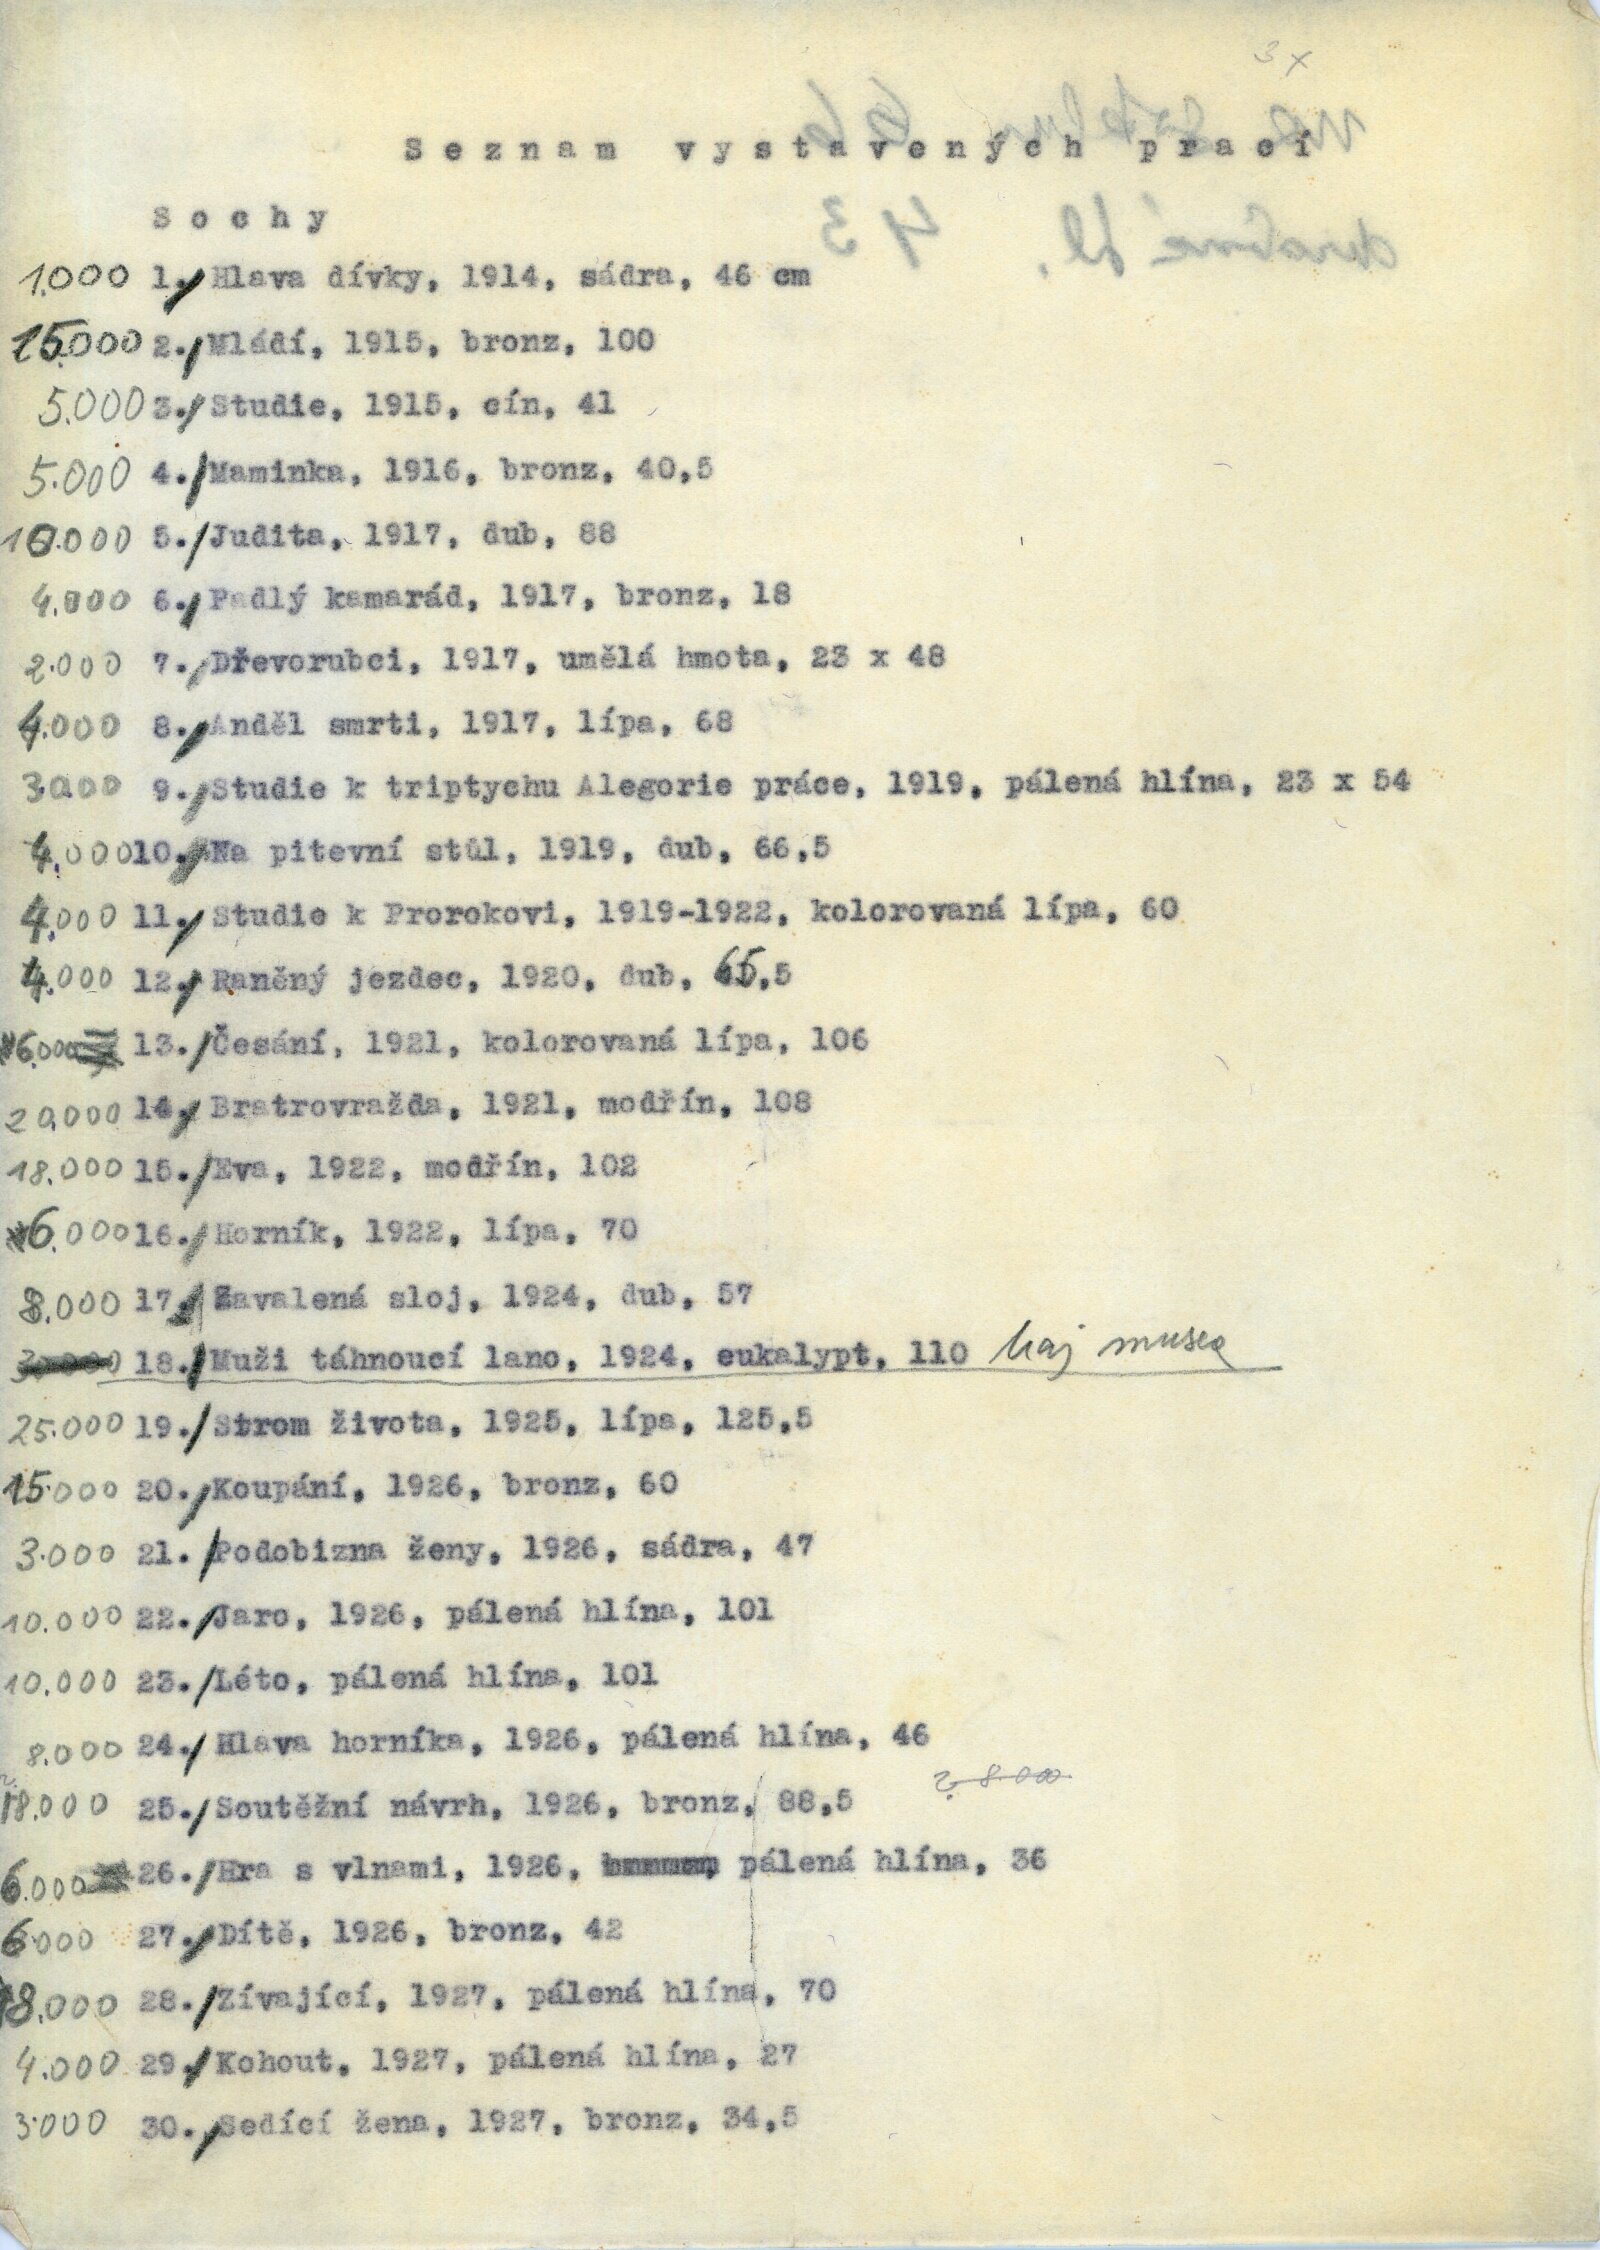 3x
Seznam vystavených prací
Sochy
1.000 1./ Hlava dívky, 1914, sádra, 46 cm
15.000 2./ Mládí, 1915, bronz, 100
5.000 3./ Studie, 1915, cín, 41
5.000 4./ Maminka, 1916, bronz, 40,5
10.000 5./ Judita, 1917, dub, 88
4.000 6./ Padlý kamarád, 1917, bronz, 18
2.000 7./ Dřevorubci, 1917, umělá hmota, 23 x 48
4.000 8./ Anděl smrti, 1917, lípa, 68
3.000 9./ Studie k triptychu Alegorie práce, 1919, pálená hlína, 23 x 54
4.000 10./ Na pitevní stůl, 1919, dub, 66,5
4.000 11./ Studie k Prorokovi, 1919-1922, kolorovaná lípa, 60
4.000 12./ Raněný jezdec, 1920, dub, 65,5
6.000 13./ Česání, 1921, kolorovaná lípa, 106
20.000 14./ Bratrovražda, 1921, modřín, 108
18.000 15./ Eva, 1922, modřín, 102
6.000 16./ Horník, 1922, lípa, 70
8.000 17./ Zavalená sloj, 1924, dub, 57
18./ Muži táhnoucí lano, 1924, eukalypt, 110 musea
25.000 19./ Strom života, 1925, lípa, 125,5
15.000 20./ Koupání, 1926, bronz, 60
3.000 21./ Podobizna ženy, 1926, sádra, 47
10.000 22./ Jaro, 1926, pálená hlína, 101
10.000 23./ Léto, pálená hlína, 101
8.000 24./ Hlava horníka, 1926, pálená hlína, 46
8.000
18.000 25./ Soutěžní návrh, 1926, bronz, 88,5
6.000 26./ Hra s vlnami, 1926, pálená hlína, 36
6.000 27./ Dítě, 1926, bronz, 42
18.000 28./ Zívající, 1927, pálená hlína, 70
4.000 29./ Kohout, 1927, pálená hlína, 27
3.000 30./ Sedící žena, 1927, bronz, 34,5